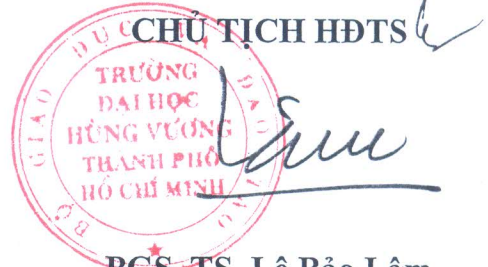 CHỦ TỊCH HĐTS
BỘ GIÁO DỤC VÀ ĐÀO TẠO
TRƯỜNG
ĐẠI HỌC
HÙNG VƯƠNG
THÀNH PHỐ
HỒ CHÍ MINH
Lâm
PGS. TS. Lê Bảo Lâm